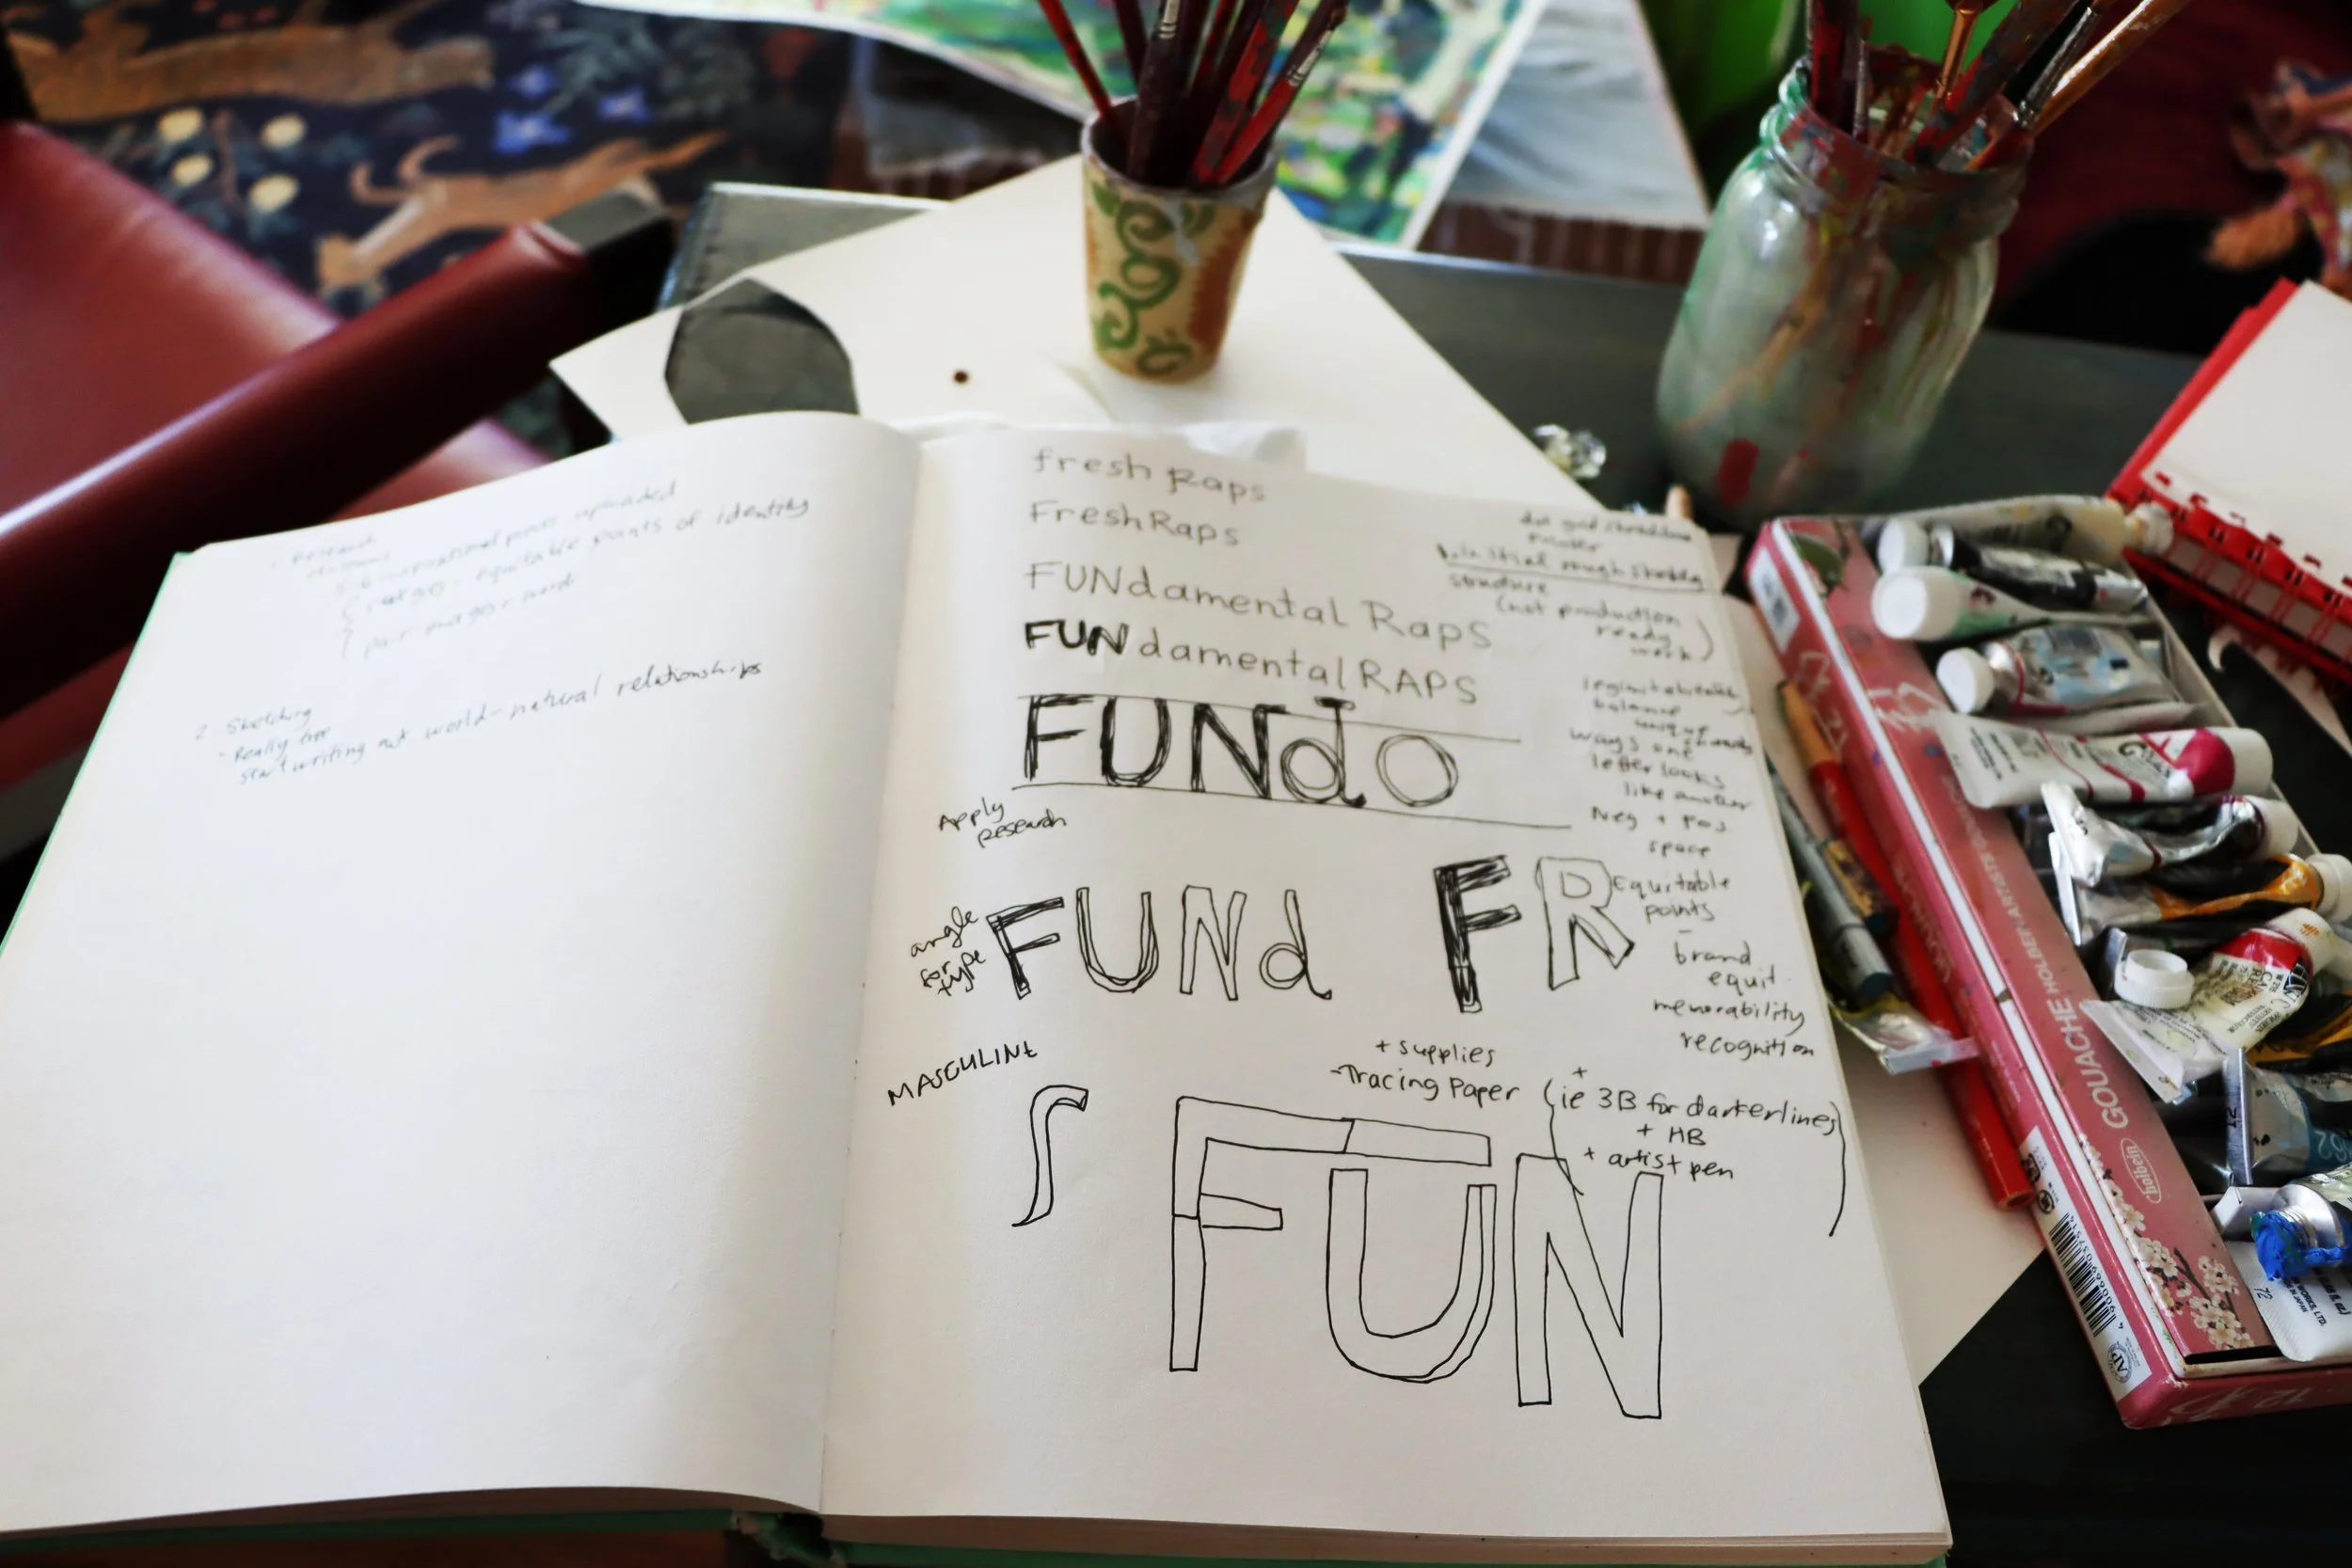 1 Research
uploaded
equitable points of identity
2. Sketching
- Really free
start writing out world-natural relationships
fresh Raps
FreshRaps
FUNdamental Raps
FUNdamentalRAPS
FUNdo
Apply
research
angle
for
type
FUNd
FR
MASCULINE
S
FUN
1. initial rough sketches
structure
(not production
ready
work)
balance
unique
ways one
letter looks
like another
Neg + Pos
space
Equitable
points
-
brand
equit
memorability
recognition
+ supplies
-Tracing Paper
+
(ie 3B for darkerlines)
+ HB
+ artist pen
GOUACHE HOLBEIN ARTISTS'
holbein
72